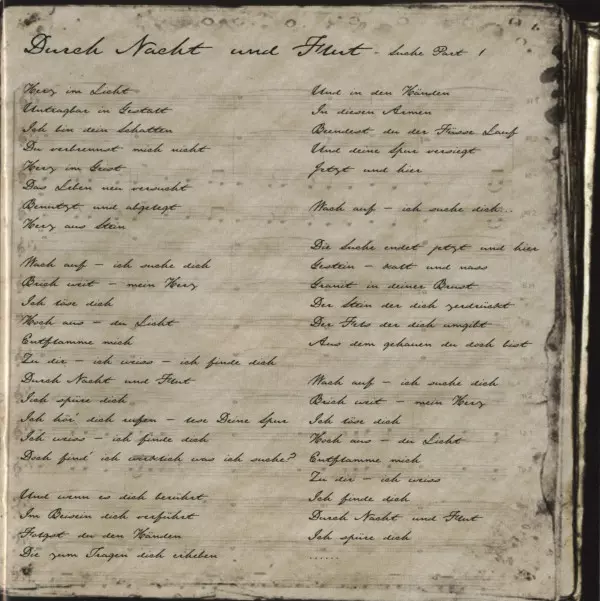 Durch Nacht und Flut - Suche Part 1
Herz im Licht
Untragbar in Gestalt
Ich bin dein Schatten
Du verbrennst mich nicht
Herz im Geist
Das Leben neu versucht
Benutzt und abgelegt
Herz aus Stein
Wach auf – ich suche dich
Brich weit – mein Herz
Ich löse dich
Hoch aus – du Licht
Entflamme mich
Zu dir – ich weiss – ich finde dich
Durch Nacht und Flut
Ich spüre dich
Ich hör' dich rufen – lese Deine Spur
Ich weiss – ich finde dich
Doch find' ich wirklich was ich suche?
Und wenn es dich berührt
Im Beisein dich verführt
Folgst du den Händen
Die zum Tragen dich erheben
Und in den Händen
In diesen Armen
Beendest du der Füsse Lauf
Und deine Spur versiegt
Jetzt und hier
Wach auf – ich suche dich...
Die Suche endet jetzt und hier
Gestein – kalt und nass
Granit in deiner Brust
Der Stein der dich zerdrückt
Der Fels der dich umgibt
Aus dem gehauen du doch bist
Wach auf – ich suche dich
Brich weit – mein Herz
Ich löse dich
Hoch aus – du Licht
Entflamme mich
Zu dir – ich weiss
Ich finde dich
Durch Nacht und Flut
Ich spüre dich
......